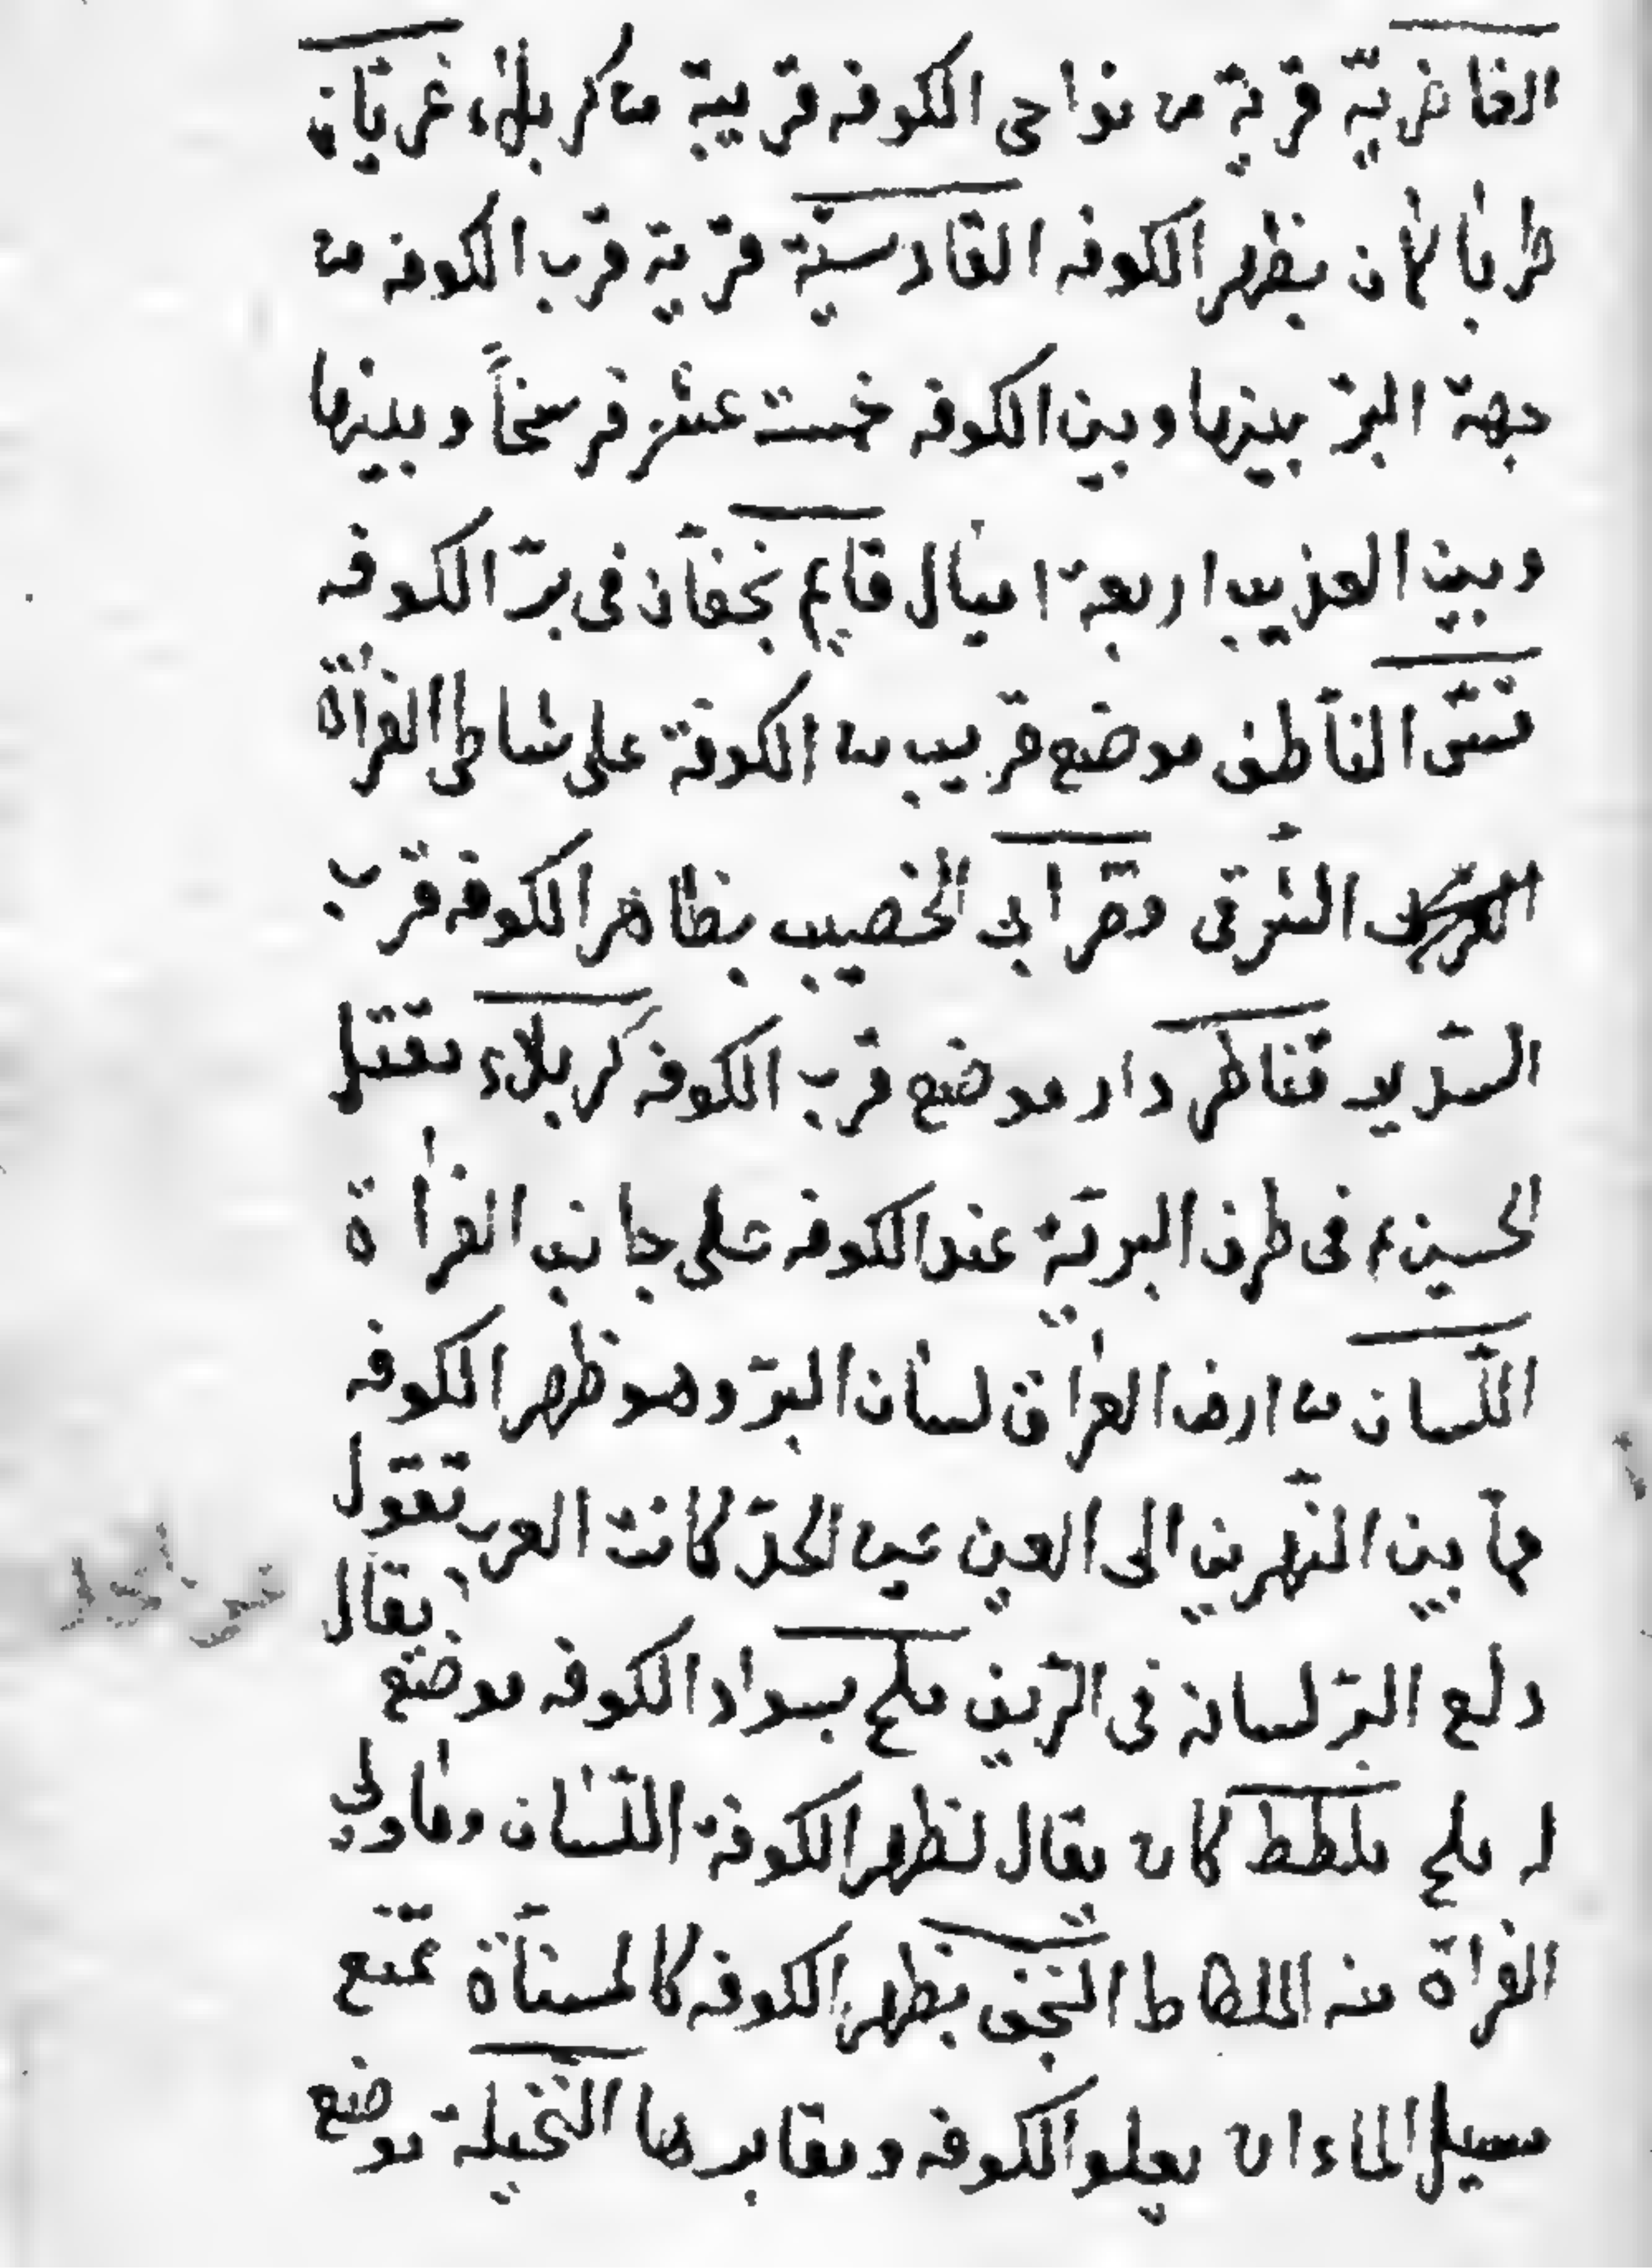 الغاضريّة قرية من نواحى الكوفه قريبة من كربلاء غريان
طربالان بظهر الكوفه القادسيّة قرية قرب الكوفه من
جهة البرّ بينها وبين الكوفه خمست عشر فرسخاً وبينها
وبين العذيب اربعة اميال قايم بخفان فى برّ الكوفه
قسّ الناطف موضع قريب من الكوفة على شاطى الفراة
الشرقى وقصر ابى الخصيب بظاهر الكوفه قرب
السّدير قناطر دار موضع قرب الكوفه كربلاء مقتل
الحسين ع فى طرف البريّة عند الكوفه على جانب الفراة
اللّسان من ارض العراق لسان البرّ وهو ظهر الكوفه
ما بين النّهرين الى العين عين الحدّ كانت العرب تقول
دلع البرّ لسانه فى الرّيف ملح بسواد الكوفه موضع يقال
له ملح ملطط كان يقال لظهر الكوفة اللّسان وما ولى
الفراة منه الملطاط النّجف بظهر الكوفه كالمسنّاة تمنع
مسيل الماء ان يعلو الكوفه ومقابرها النّخيلة موضع